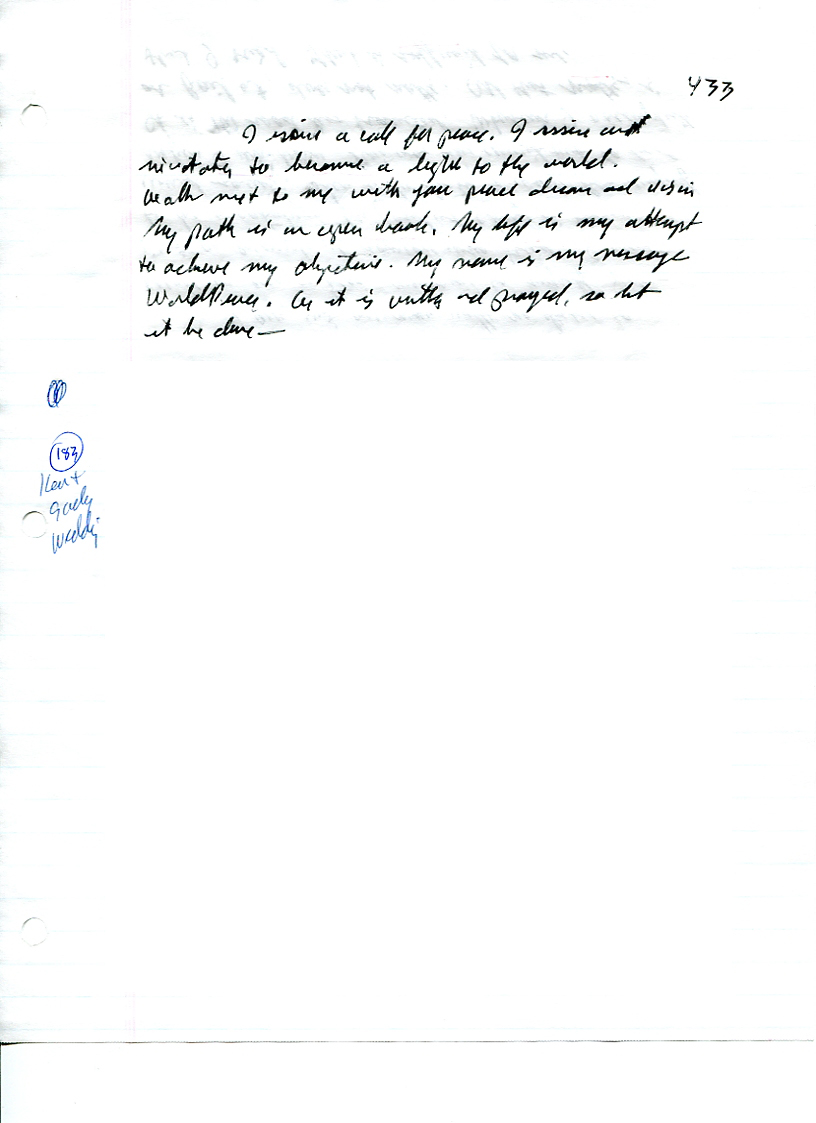 433
I issue a call for peace. I issue an
invitation to become a light to the world.
next to me with your peace dream and vision
My path is an open book. My life is my attempt
to achieve my objective. My name is my message
WorldPeace. As it is written and prayed, so let
it be done—
183
Kent
Waddy